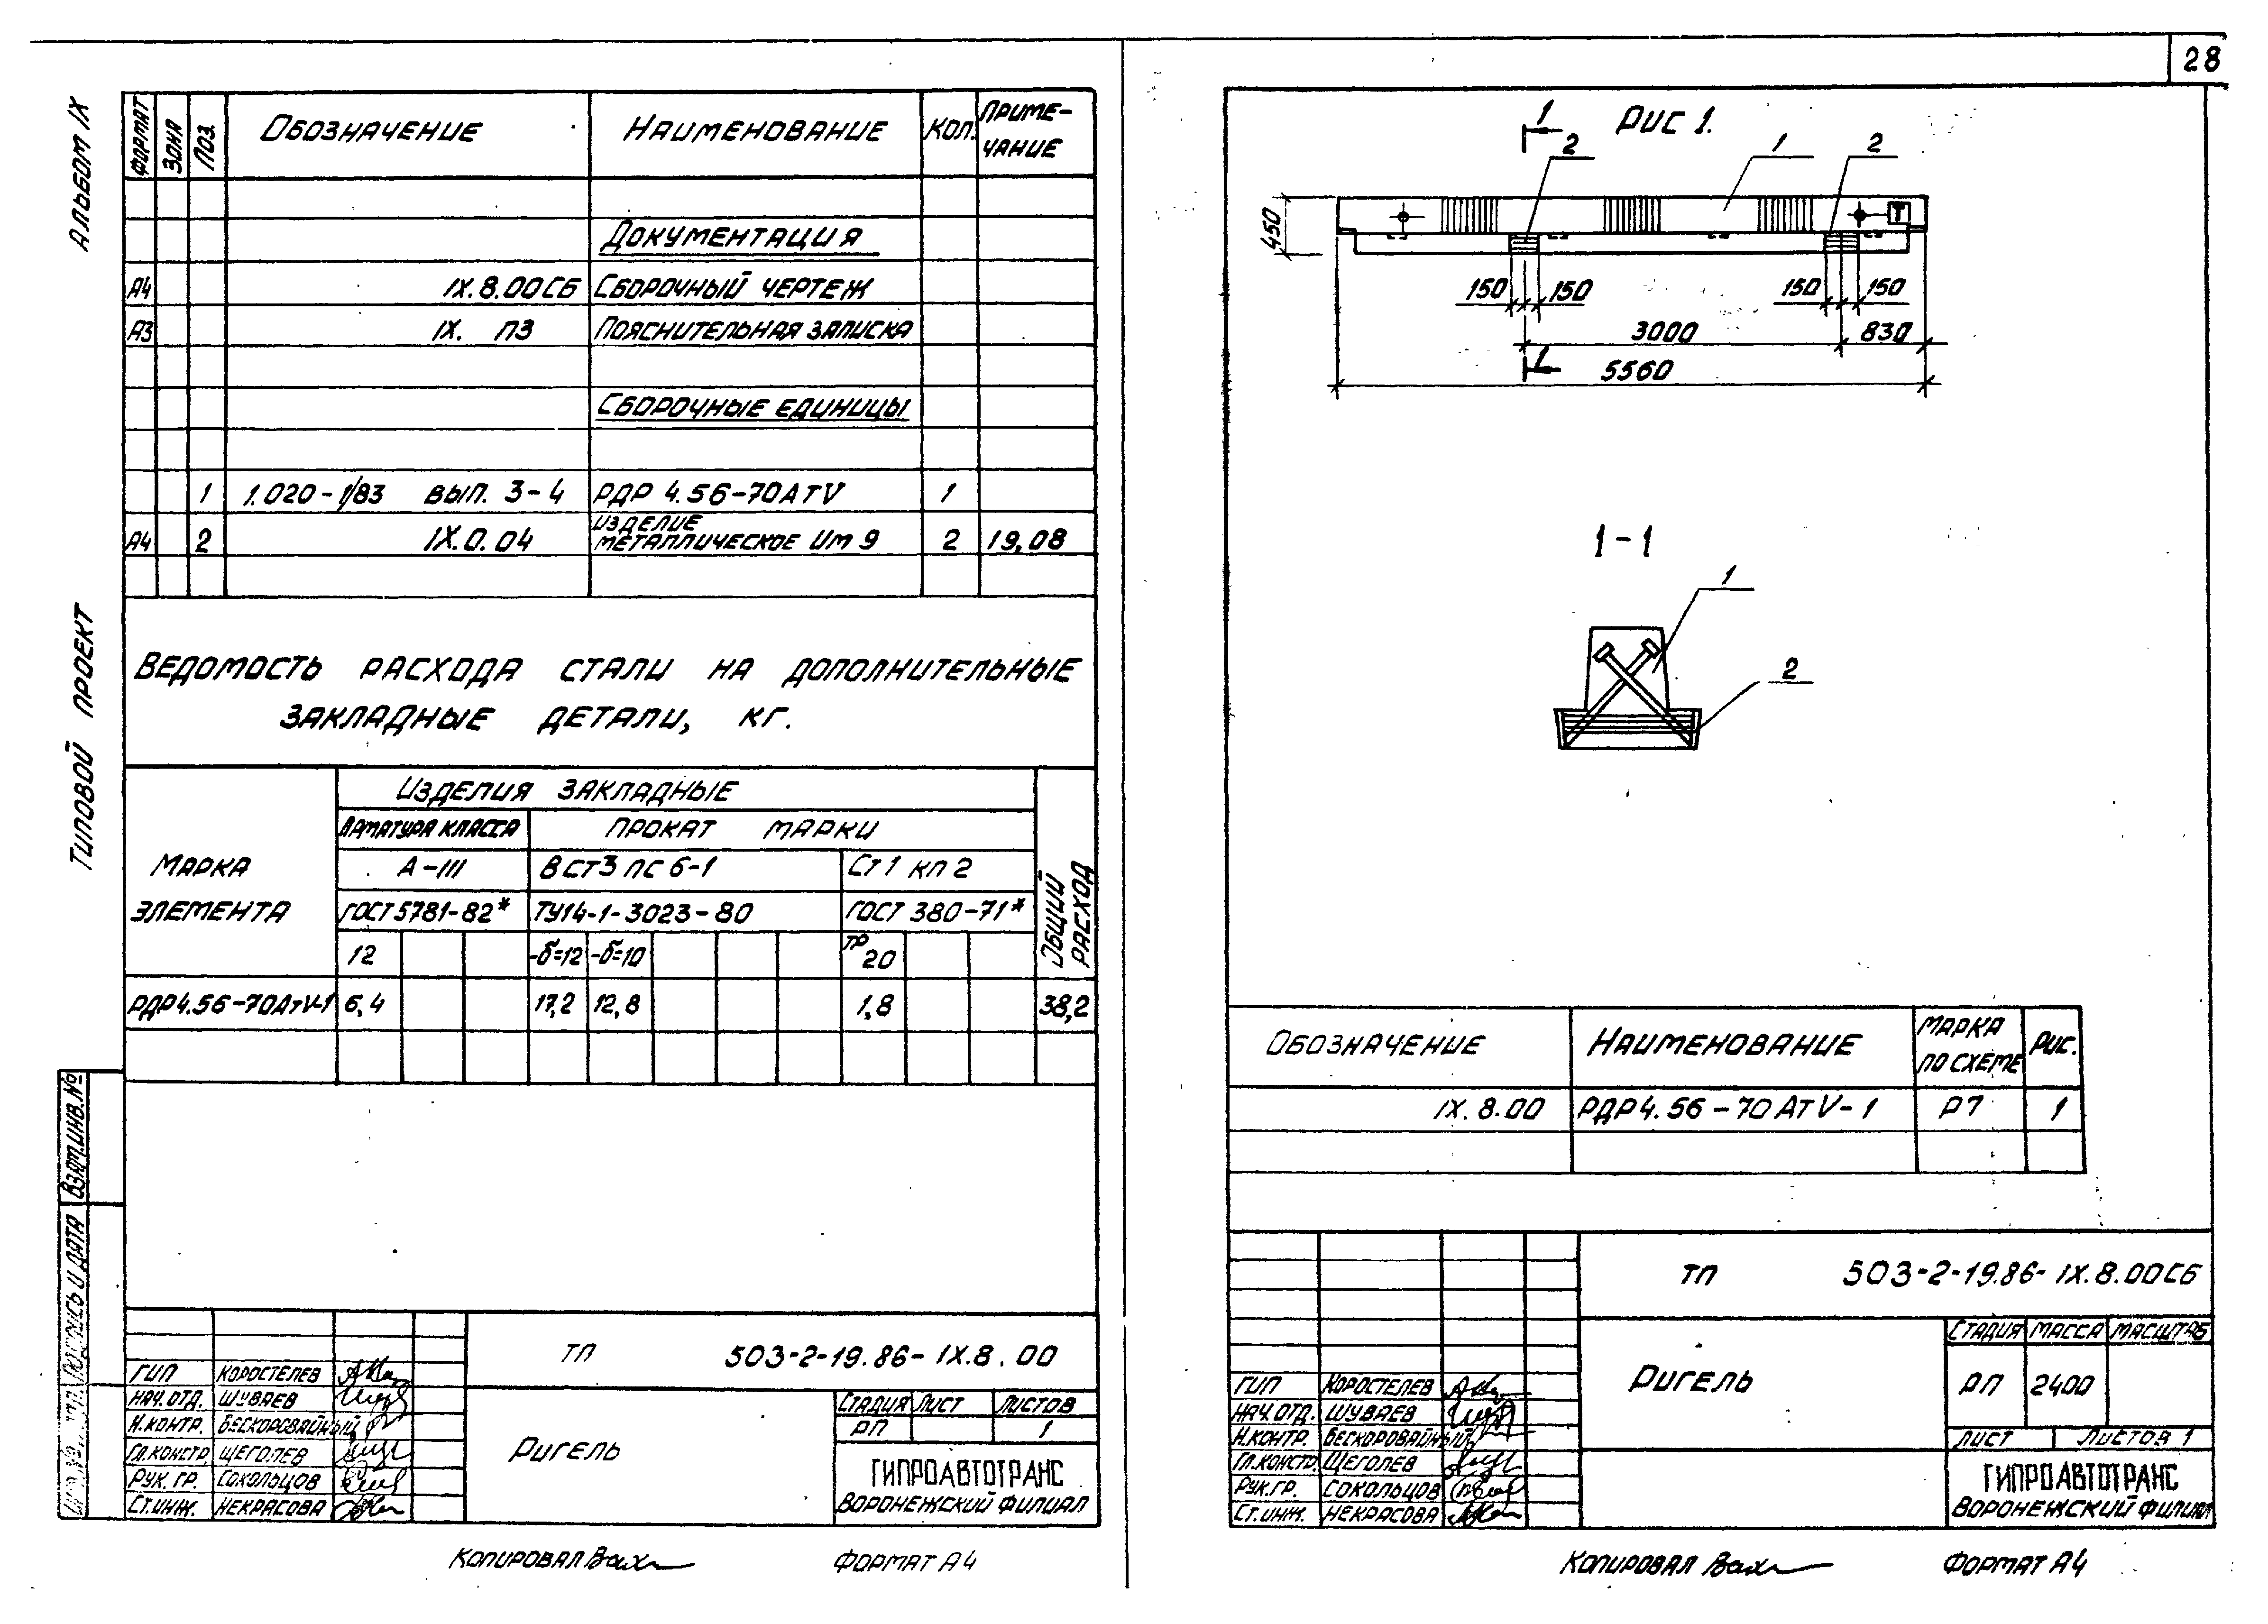 28
Альбом IX
Типовой проект
Формат
Зона
Поз.
Обозначение
Наименование
Кол.
Приме-
чание
Документация
А4 IX.8.00СБ Сборочный чертеж
А3 IX. ПЗ Пояснительная записка
Сборочные единицы
1 1.020-1/83 вып. 3-4 РДР 4.56-70АтV 1
изделие
А4 2 IX.0.04 металлическое Им 9 2 19,08
Ведомость расхода стали на дополнительные
закладные детали, кг.
Марка
элемента
Изделия закладные
Арматура класса
Прокат марки
А-III
ВСт3пс6-1
Ст1кп2
ГОСТ 5781-82*
ТУ14-1-3023-80
ГОСТ 380-71*
12
-δ=12
-δ=10
тр
20
Общий
расход
РДР4.56-70АтV-1 6,4 17,2 12,8 1,8 38,2
Взам.инв.№
Подпись и дата
ТП 503-2-19.86-IX.8.00
ГИП Коростелев
Нач.отд. Шуваев
Н.контр. Бескоровайный
Гл.констр. Щеголев
Рук.гр. Сокольцов
Ст.инж. Некрасова
Ригель
Стадия Лист Листов
РП 1
ГИПРОАВТОТРАНС
Воронежский филиал
Копировал
Формат А4
Рис 1.
1
2
1
2
450
Т
150
150
150
150
3000
830
1
5560
1-1
1
2
Обозначение
Наименование
Марка
по схеме
Рис.
IX.8.00 РДР4.56-70АтV-1 Р7 1
ТП 503-2-19.86-IX.8.00СБ
ГИП Коростелев
Нач.отд. Шуваев
Н.контр. Бескоровайный
Гл.констр. Щеголев
Рук.гр. Сокольцов
Ст.инж. Некрасова
Ригель
Стадия Масса Масштаб
РП 2400
Лист Листов 1
ГИПРОАВТОТРАНС
Воронежский филиал
Копировал
Формат А4